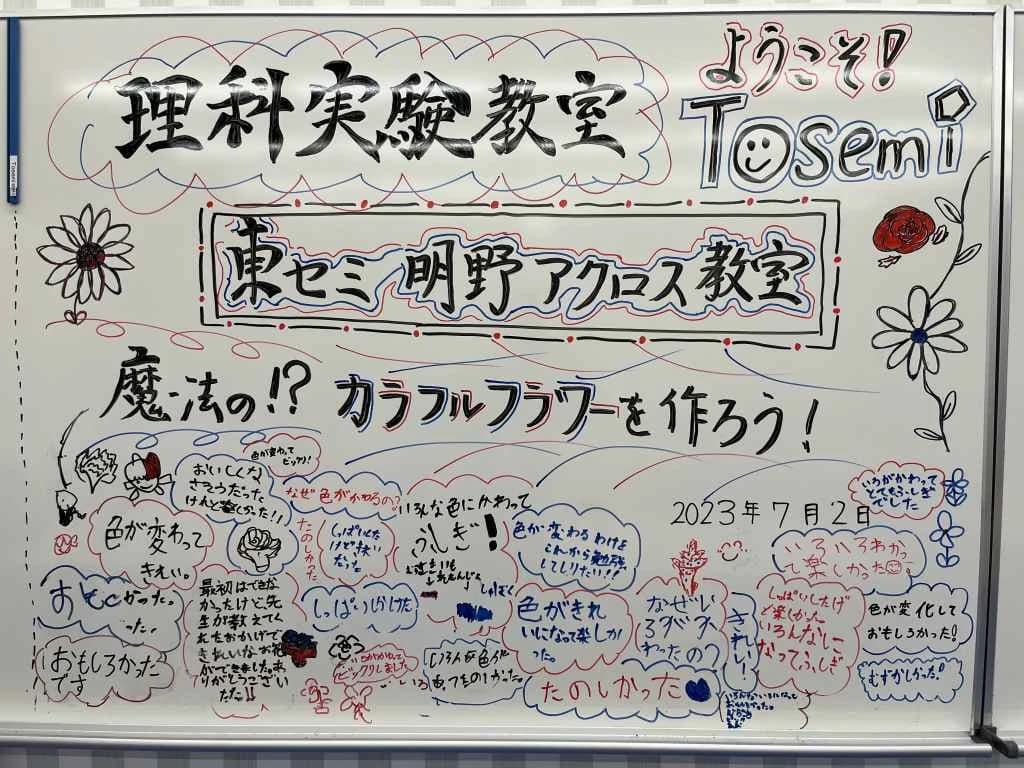 理科実験教室
ようこそ!
Tosemi
東セミ 明野アクロス教室
魔法の!? カラフルフラワーを作ろう!
2023年7月2日
色が変わって
ビックリ!
おいしくな
さそうだった
けれど楽しかった!!
なぜ色がかわるの?
いろんな色にかわって
ふしぎ!
いろがかわって
とてもふしぎ
でした
色が変わって
きれい。
たのしかった
しっぱいした
けど快い
だった
色が変わるわけを
これから勉強
してしりたい!!
いろいろわかっ
て楽しかった
最初はできな
かったけど、先
生が教えてく
れたおかげで
きれいなお花
ができました。あ
りがとうござい
ました!!
しっぱいしかけた
色がきれ
いになって楽しか
った。
なぜい
ろがか
わったの?
きれい!
しっぱいしたけ
ど楽しかった
いろんないろに
なってふしぎ
色が変化して
おもしろかった!
おもしろかった
です
いろがかわって
ビックリしました
たのしかった
むずかしかった!